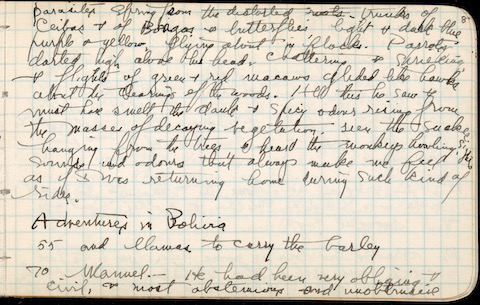 parasites spring from the distorted trunks of
Ceibas & of Boagas & butterflies light & dark blue
purple & yellow flying about in flocks. Parrots
darted high above the head. Chattering & shrieking
& flights of green & red macaws glided like hawks
about the clearings of the woods. All this he saw &
must have smelt the dank & spicy odour rising from
the masses of decaying vegetation. seen the snakes
hanging from the trees & heard the monkeys howling
sounds and odours that always make me feel
as if I was returning home during such kind of
rides.
Adventures in Bolivia
55 and llamas to carry the barley
70 Manuel:— He had been very obliging &
civil, & most abstemious and unobtrusive